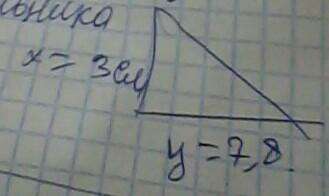 ьника
x = 3 см
y = 7,8